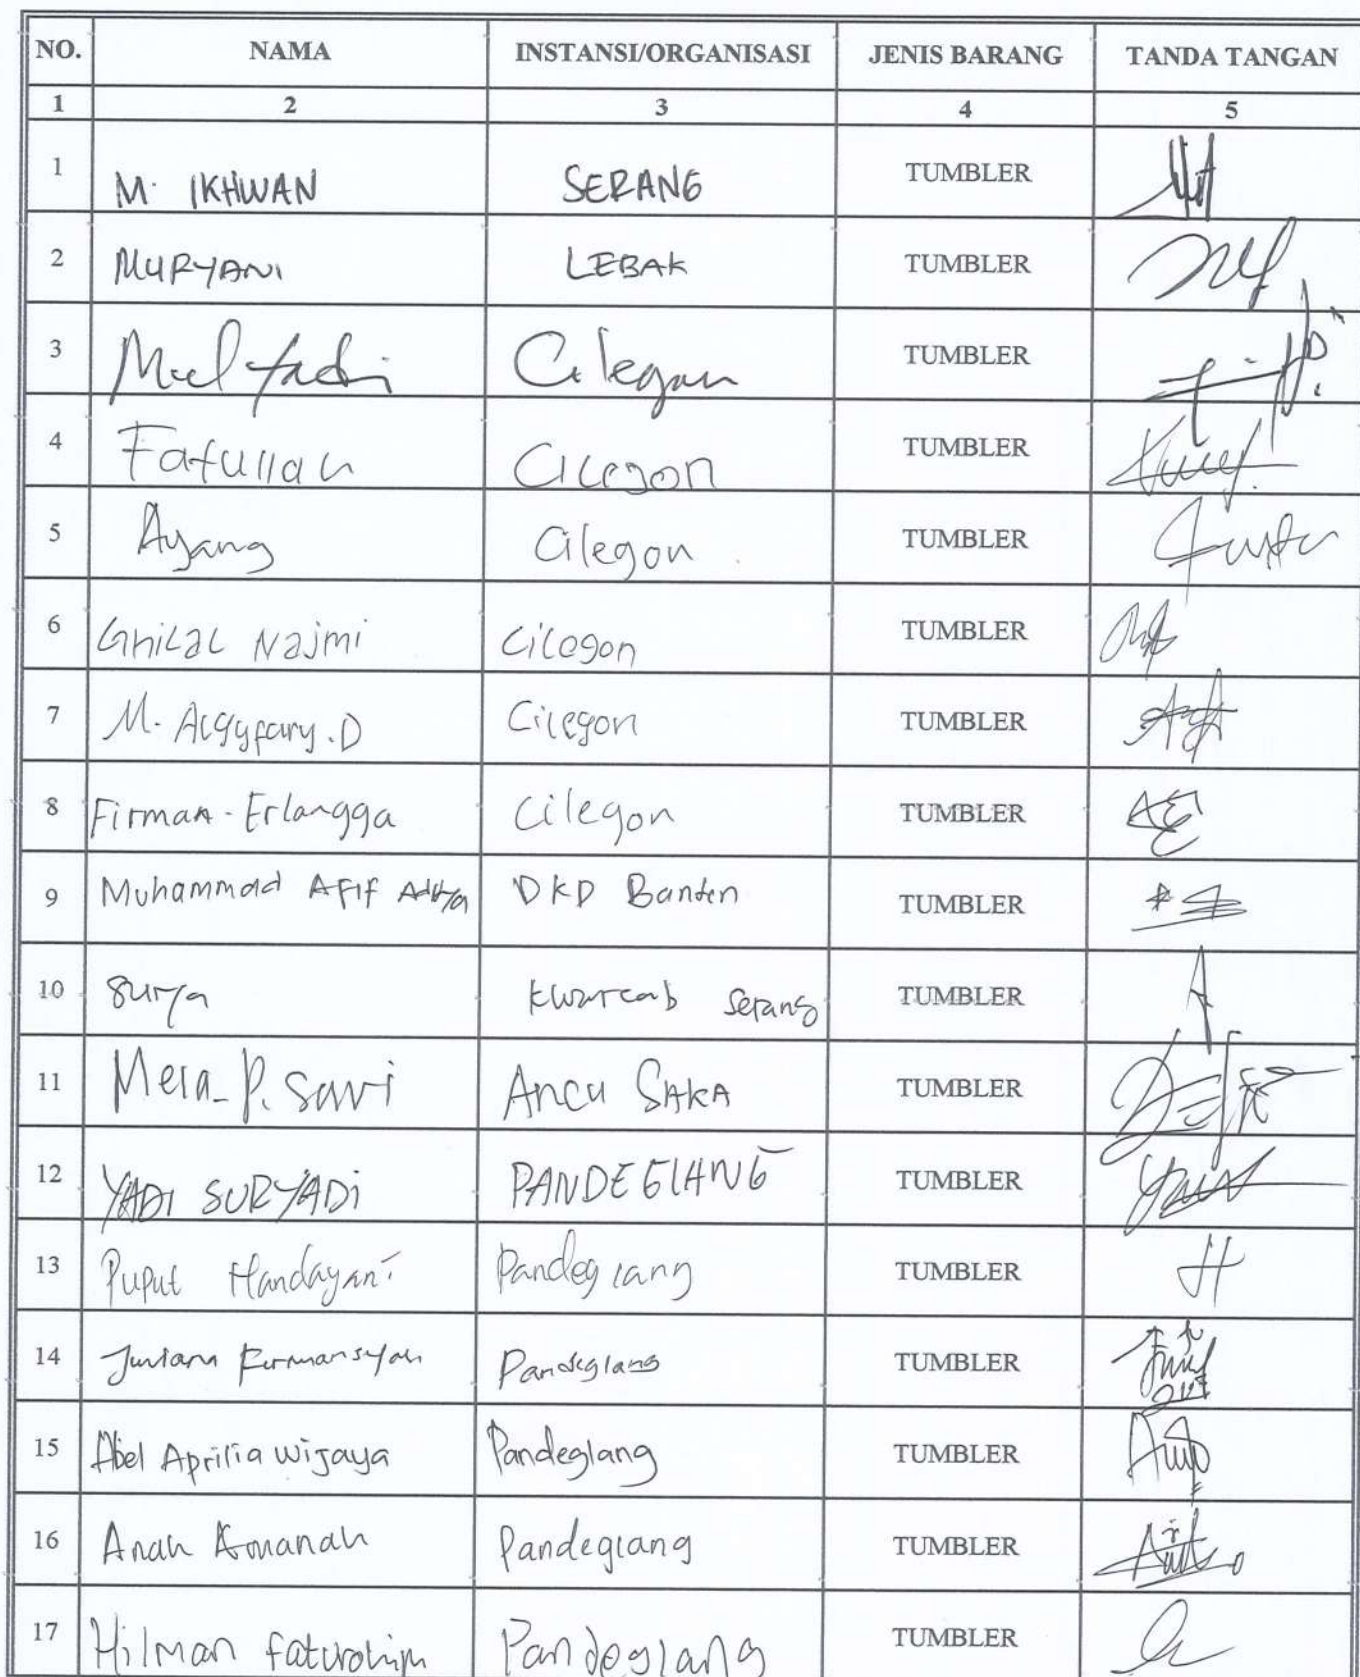 NO. NAMA INSTANSI/ORGANISASI JENIS BARANG TANDA TANGAN
1 2 3 4 5
1 M. IKHWAN SERANG TUMBLER
2 MURYANI LEBAK TUMBLER
3 Cilegon TUMBLER
4 Fatullah Cilegon TUMBLER
5 Ayang Cilegon TUMBLER
6 Ghilal Najmi Cilegon TUMBLER
7 M. Algyfary. D Cilegon TUMBLER
8 Firman - Erlangga Cilegon TUMBLER
9 Muhammad Afif DKD Banten TUMBLER
10 Surya Kwarcab Serang TUMBLER
11 P. Sari SAKA TUMBLER
12 YADI SURYADI PANDEGLANG TUMBLER
13 Puput Handayani Pandeglang TUMBLER
14 Pandeglang TUMBLER
15 Abel Aprilia Wijaya Pandeglang TUMBLER
16 Anah Amanah Pandeglang TUMBLER
17 Hilman faturohim Pandeglang TUMBLER